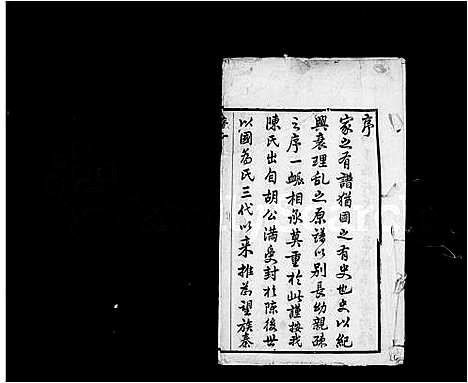 序
家之有譜猶國之有史也史以紀
興衰理乱之原譜以別長幼親疎
之序一岷相承莫重於此謹按我
陳氏出自胡公滿受封於陳後世
以國為氏三代以来推為望族秦